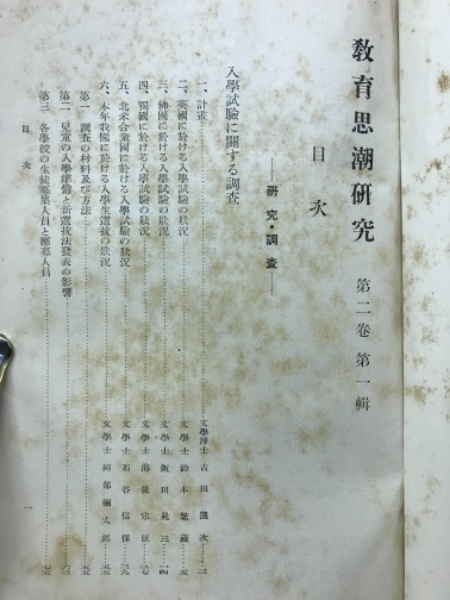 教育思潮研究 第二卷 第一輯
目次
――研究・調査――
入學試驗に關する調査
一、計畫……文學博士 吉田熊次……三
二、英國に於ける入學試驗の狀況……文學士 鈴木……五
三、佛國に於ける入學試驗の狀況……文學士 飯田晁三……一四
四、獨國に於ける入學試驗の狀況……文學士 海後宗臣……二七
五、北米合衆國に於ける入學試驗の狀況……文學士 石谷信保……三九
六、本年我國に於ける入學生選拔の狀況……文學士 岡部彌太郎……五五
第一 調査の材料及び方法……五五
第二 兒童の入學準備と新選拔法發表の影響……六三
第三 各學校の生徒募集人員と應募人員……七五
目次 一